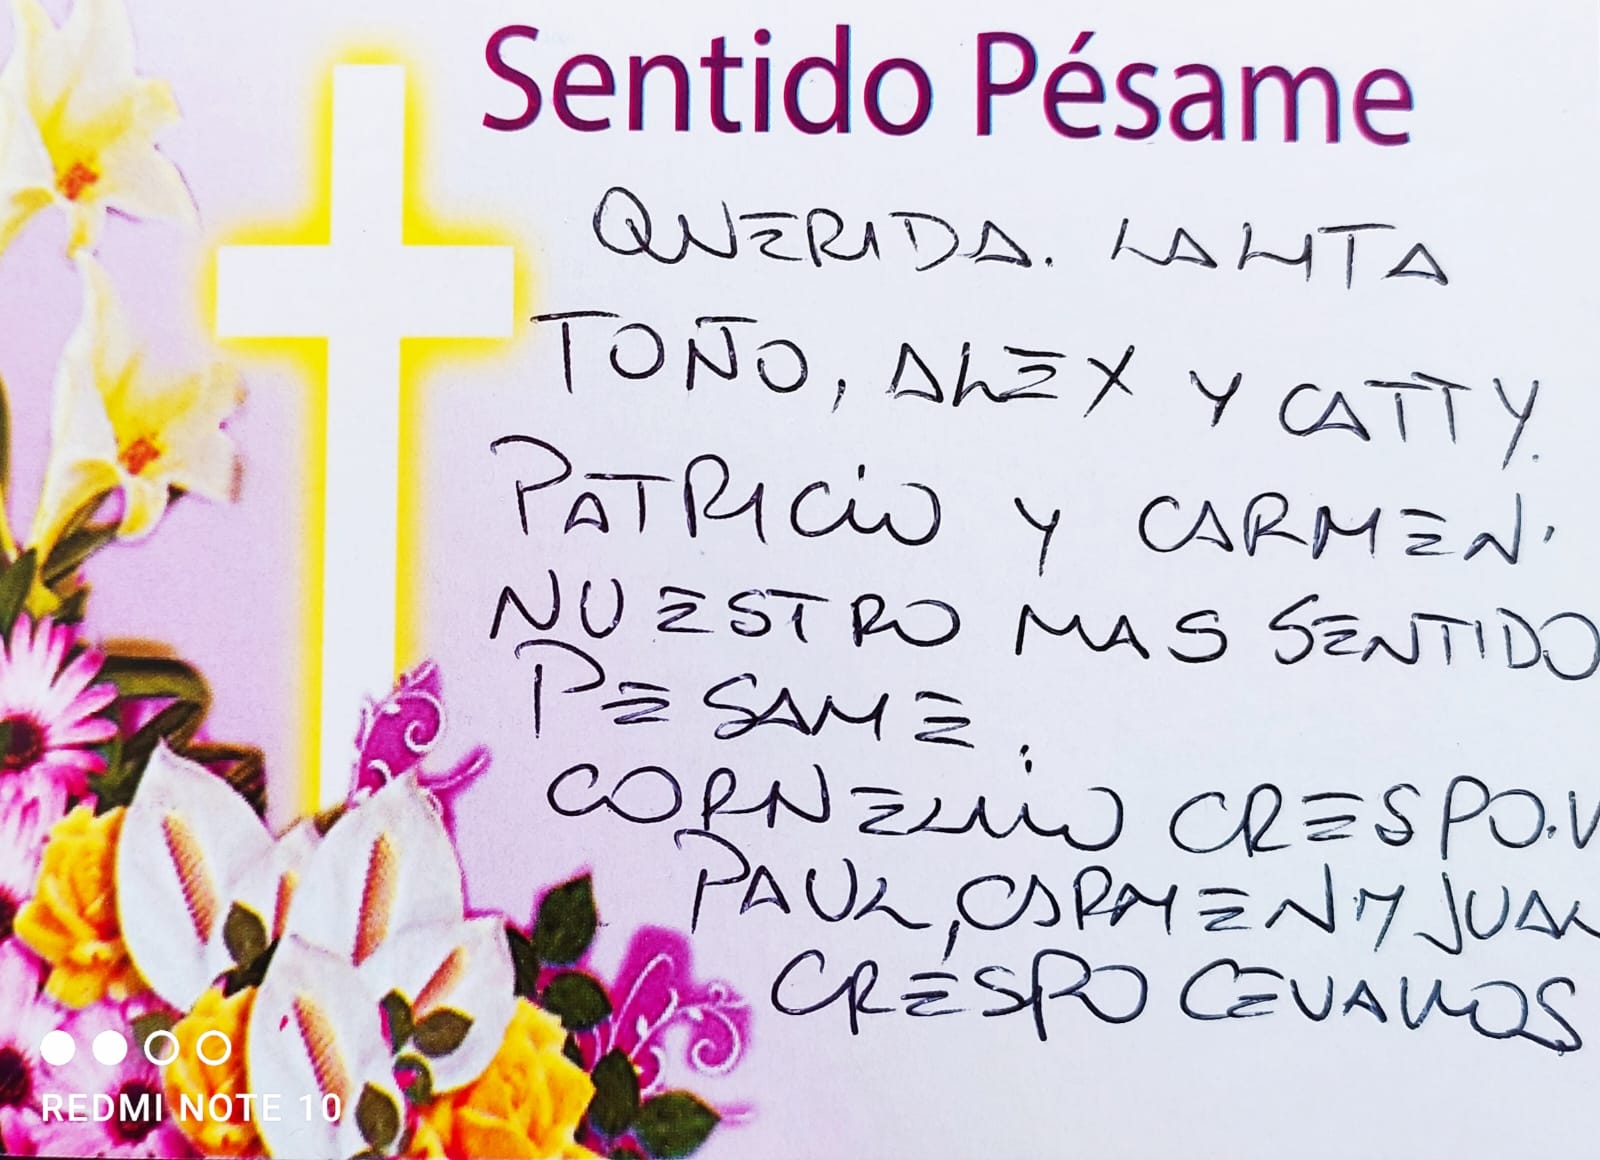 Sentido Pésame
QUERIDA. LALITA
TOÑO, ALEX Y CATTY.
PATRICIO Y CARMEN.
NUESTRO MAS SENTIDO
PESAME.
CORNELIO CRESPO.V
PAUL, CARMEN Y JUAN
CRESPO CEVALLOS
REDMI NOTE 10